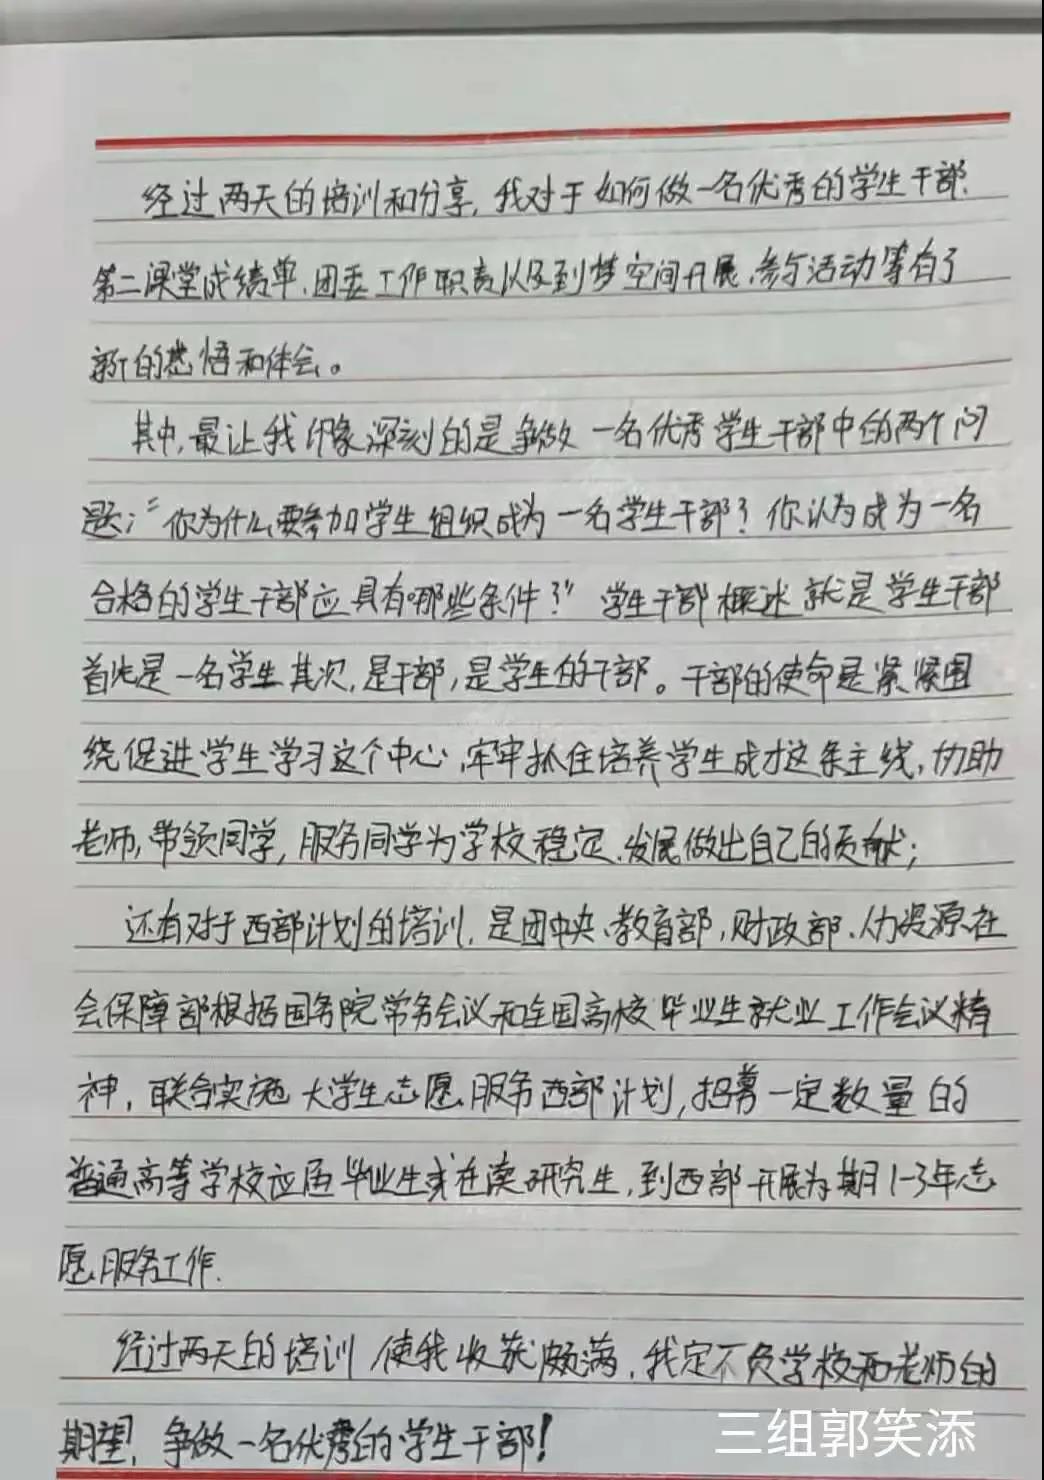 经过两天的培训和分享,我对于如何做一名优秀的学生干部、
第二课堂成绩单、团委工作职责以及到梦空间开展、参与活动等有了
新的感悟和体会。
其中,最让我印象深刻的是争做一名优秀学生干部中的两个问
题:“你为什么要参加学生组织成为一名学生干部?你认为成为一名
合格的学生干部应具有哪些条件?”学生干部概述就是学生干部
首先是一名学生其次,是干部,是学生的干部。干部的使命是紧紧围
绕促进学生学习这个中心,牢牢抓住培养学生成才这条主线,协助
老师,带领同学,服务同学为学校稳定、发展做出自己的贡献;
还有对于西部计划的培训,是团中央、教育部,财政部、人力资源在
会保障部根据国务院常务会议和全国高校毕业生就业工作会议精
神,联合实施大学生志愿服务西部计划,招募一定数量的
普通高等学校应届毕业生或在读研究生,到西部开展为期1-3年志
愿服务工作.
经过两天的培训使我收获颇满,我定不负学校和老师的
期望,争做一名优秀的学生干部!
三组郭笑添